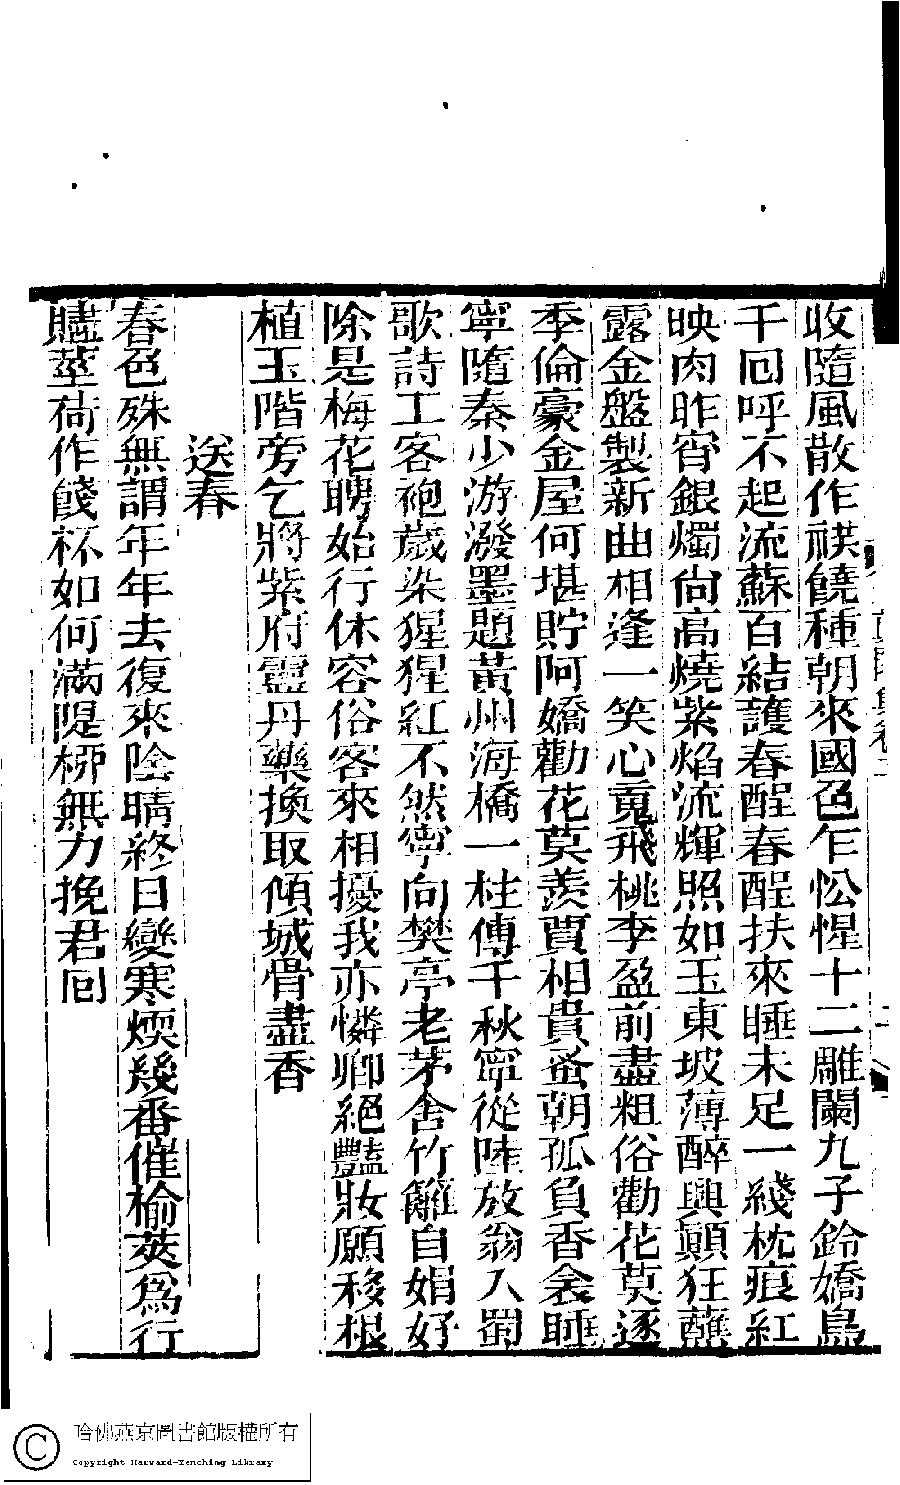 收隨風散作祺饒種朝來國色乍忪惺十二雕闌九子鈴嬌鳥
千回呼不起流蘇百結護春酲春酲扶來睡未足一綫枕痕紅
映肉昨宵銀燭尙高燒紫焰流輝照如玉東坡薄醉興顚狂蘸
露金盤製新曲相逢一笑心竟飛桃李盈前盡粗俗勸花莫逐
季倫豪金屋何堪貯阿嬌勸花莫羨賈相貴蚤朝孤負香衾睡
寧隨秦少游潑墨題黃州海橋一柱傳千秋寧從陸放翁入蜀
歌詩工客袍歲染猩猩紅不然寧向樊亭老茅舍竹籬自娟好
除是梅花聘始行休容俗客來相擾我亦憐卿絕豔妝願移根
植玉階旁乞將紫府靈丹藥換取傾城骨盡香
送春
春色殊無謂年年去復來陰晴終日變寒煖幾番催榆莢爲行
贐莖荷作餞杯如何滿隄栁無力挽君回
二
哈佛燕京圖書館版權所有
Copyright Harvard-Yenching Library